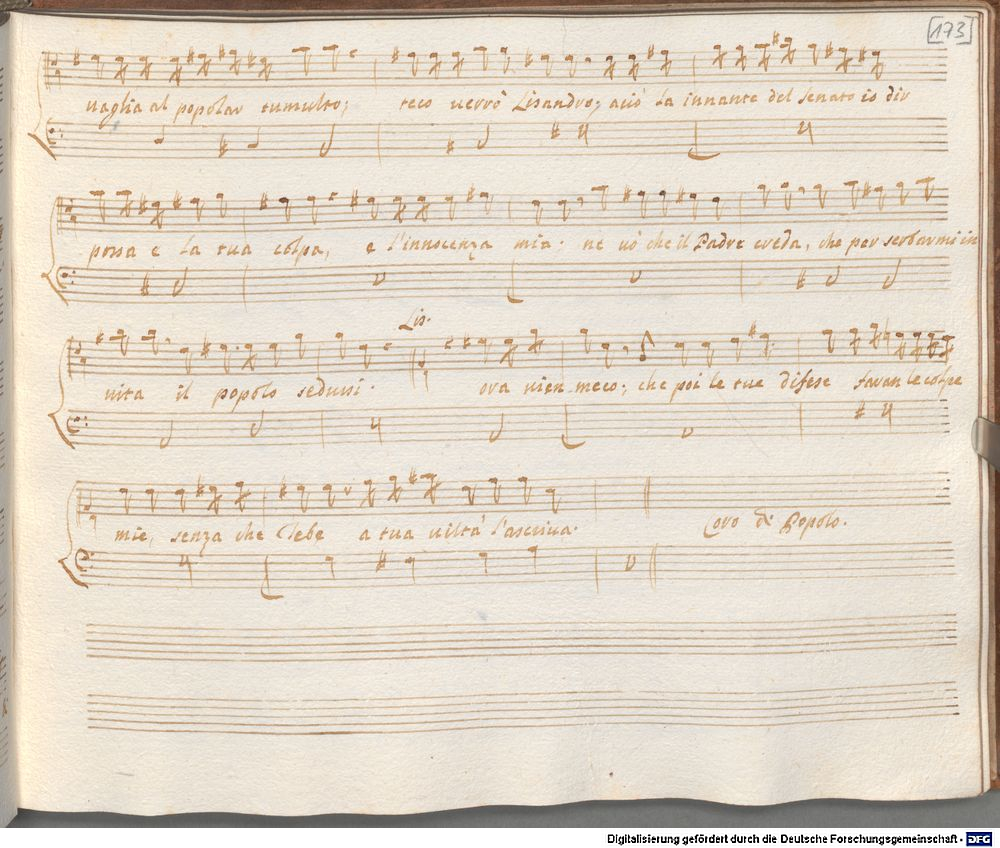 [173]
uaglia al popolar tumulto; teco uerrò Lisandro; acciò la innante del senato io dir
possa e la tua colpa, e l'innocenza mia: ne uò che il Padre creda, che per serbarmi in
Lis.
uita il popolo sedussi. ora vien meco; che poi le tue difese faran le colpe
mie, senza che Tebe a tua uiltà l'ascriua. Coro di Popolo.
Digitalisierung gefördert durch die Deutsche Forschungsgemeinschaft - DFG